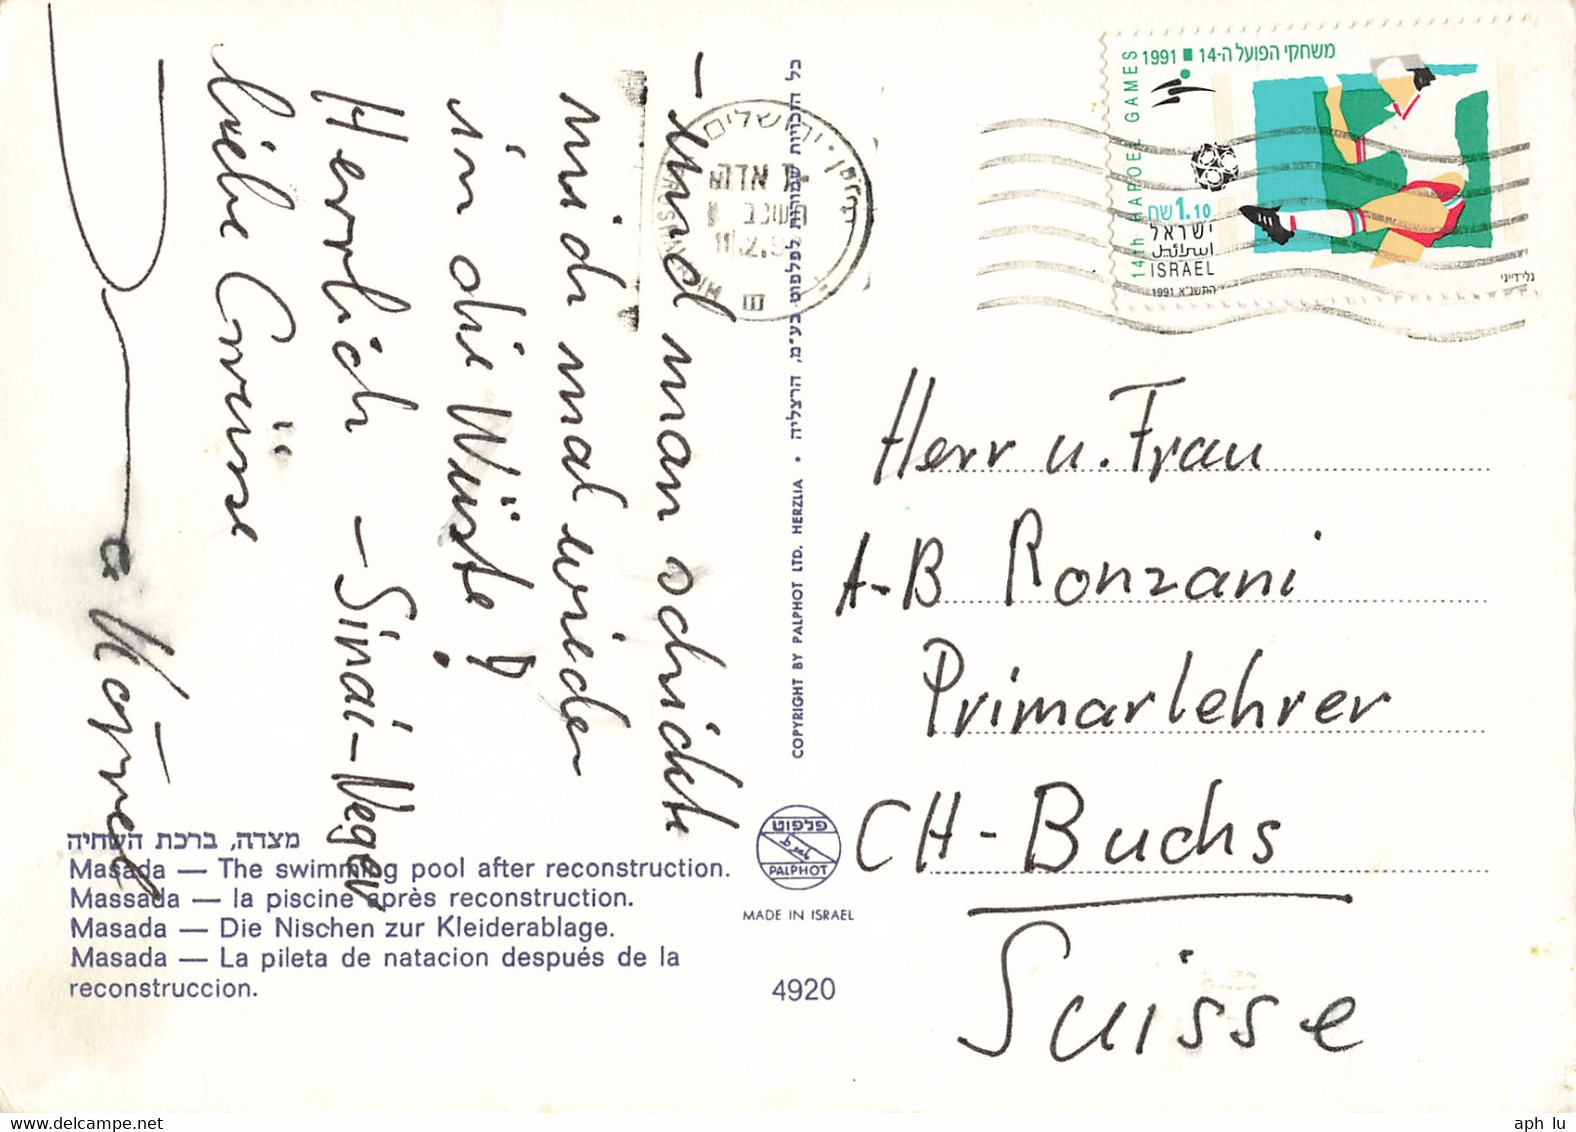 – und man schickt
mich mal wieder
in die Wüste!
Herrlich – Sinai-Negev
liebe Grüsse
משחקי הפועל ה-14 ■ 1991
14th HAPOEL GAMES
1.10 ש״ח
ישראל
اسرائيل
ISRAEL
התשנ"א 1991
ירושלים
JERUSALEM
Herr u. Frau
A-B Ronzani
Primarlehrer
CH-Buchs
Suisse
כל הזכויות שמורות לפלפוט בע"מ, הרצליה • COPYRIGHT BY PALPHOT LTD. HERZLIA
פלפוט
PALPHOT
MADE IN ISRAEL
4920
מצדה, ברכת השחיה
Masada — The swimming pool after reconstruction.
Massada — la piscine après reconstruction.
Masada — Die Nischen zur Kleiderablage.
Masada — La pileta de natacion después de la
reconstruccion.
aph lu